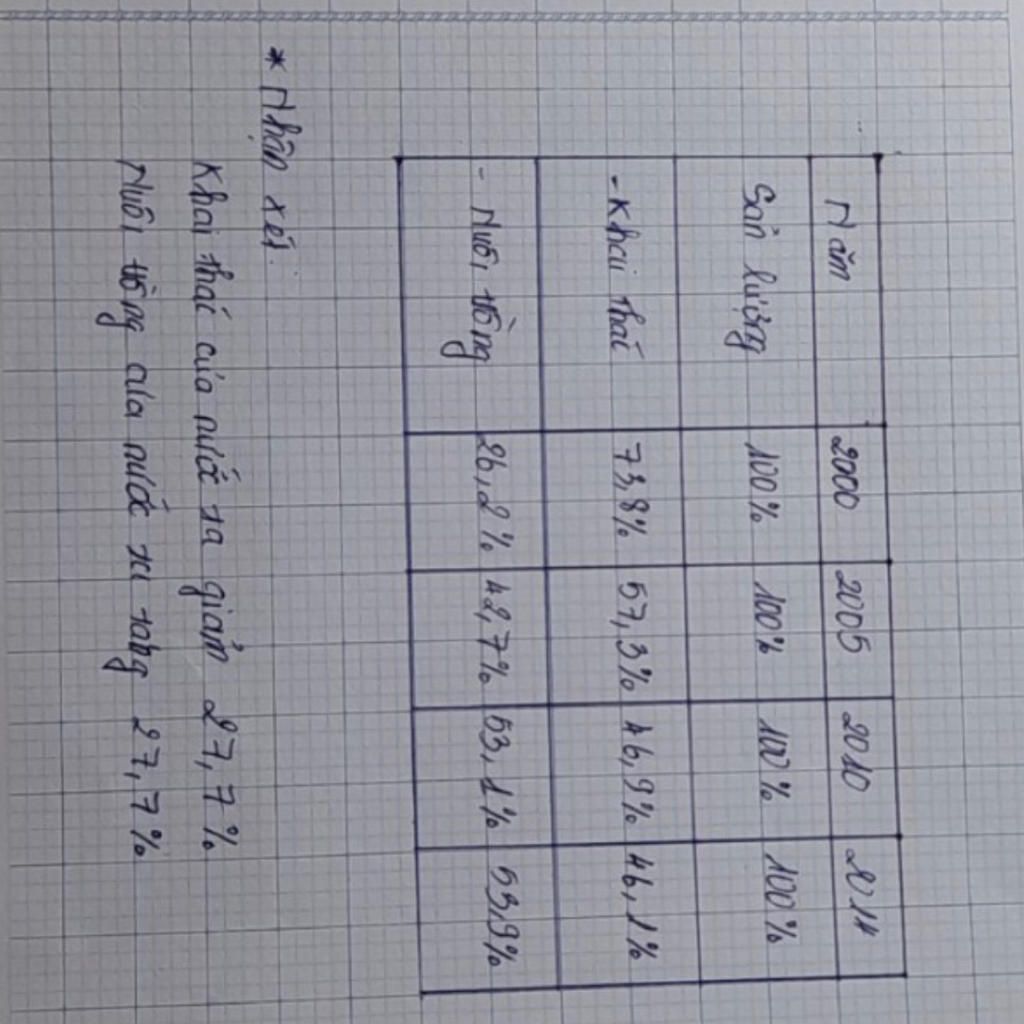 Năm 2000 2005 2010 2014
Sản lượng 100% 100% 100% 100%
- Khai thác 73,8% 57,3% 46,9% 46,1%
- Nuôi trồng 26,2% 42,7% 53,1% 53,9%
* Nhận xét:
Khai thác của nước ta giảm 27,7%
Nuôi trồng của nước ta tăng 27,7%